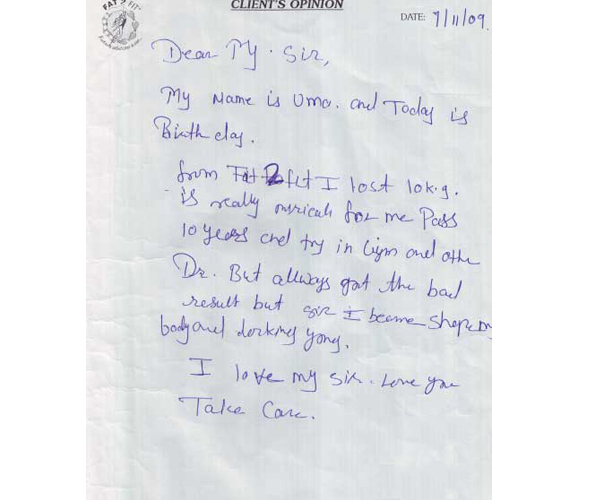 FAT 2 FIT
CLIENT'S OPINION
DATE: 7/11/09.
Dear My. Sir,
My Name is Uma. and Today is
Birth day.
from Fat 2 fit I lost 10k.g.
is really for me Pass
10 years and try in Gym and othe
Dr. But allways got the bad
result but sir I became Shape m
body and lorking yong.
I love my sir. Love you
Take Care.